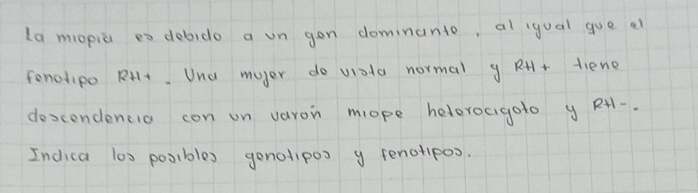 La miopia es debido a un gen dominante, al igual que el
fenotipo RH+. Una mujer de vista normal y RH+ tiene
descendencia con un varón miope heterocigoto y RH-.
Indica los posibles genotipos y fenotipos.